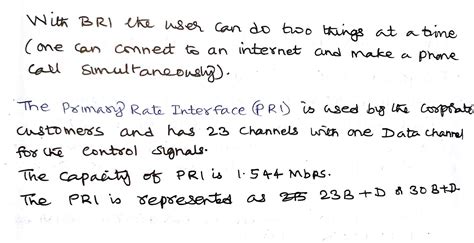 With BRI the user can do two things at a time
(one can connect to an internet and make a phone
call simultaneously).
The Primary Rate Interface (PRI) is used by the corporate
customers and has 23 channels with one Data channel
for the control signals.
The capacity of PRI is 1.544 Mbps.
The PRI is represented as 23B+D or 30B+D.